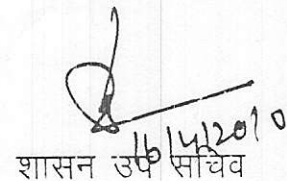 16/4/2010
शासन उप सचिव